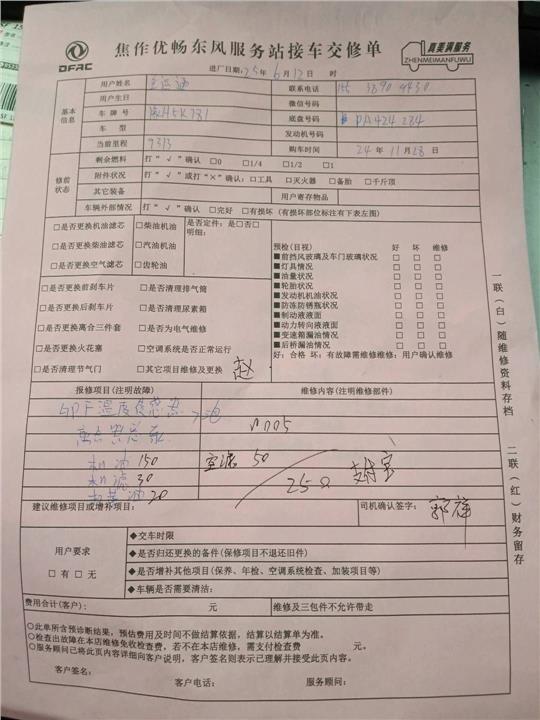 DFAC
焦作优畅东风服务站接车交修单
真美满服务
ZHENMEIMANFUWU
进厂日期：25年6月12日 时
基本信息
用户姓名 联系电话 155 3890 4430
用户生日 微信号码
车牌号 豫H5K781 底盘号码 PA424284
车型 发动机号码
当前里程 9313 购车时间 24年11月28日
修前状态
剩余燃料 打“√”确认 □0 □1/4 □1/2 □1
附件状况 打“√”或打“×”确认：□工具 □灭火器 □备胎 □千斤顶
其它装备 用户寄存物品
车辆外部情况 打“√”确认 □完好 □有损坏（有损坏部位标注有下表左图）
□是否更换机油滤芯 □柴油机油 是否定件：是□否□
□是否更换柴油滤芯 □汽油机油 明细：
□是否更换空气滤芯 □齿轮油
□是否更换前刹车片 □是否清理排气筒
□是否更换后刹车片 □是否清理尿素箱
□是否更换离合三件套 □是否为电气维修
□是否更换火花塞 □空调系统是否正常运行
□是否清理节气门 □其它项目维修及更换 赵
预检（目视） 好 坏 维修
■前挡风玻璃及车门玻璃状况 □ □ □
■灯具情况 □ □ □
■油量状况 □ □ □
■轮胎状况 □ □ □
■发动机机油状况 □ □ □
■防冻防锈瓶状况 □ □ □
■制动液液面 □ □ □
■动力转向液液面 □ □ □
■变速箱漏油情况 □ □ □
■后桥漏油情况 □ □ □
好：合格 坏：有故障需维修维修：用户确认维修
报修项目（注明故障） 维修内容（注明维修部件）
机油 150 空滤 50
机滤 30 250 支付宝
20
建议维修项目或增补项目： 司机确认签字：郭祥
用户要求
□有 □无
◆交车时限
◆是否归还更换的备件（保修项目不退还旧件）
◆是否增补其他项目（保养、年检、空调系统检查、加装项目等）
◆车辆是否需要清洁：
费用合计（客户）： 元 维修及三包件不允许带走
○此单所含预诊断结果，预估费用及时间不做结算依据，结算以结算单为准。
○检查出故障在本店维修免收检查费，若不在本店维修，需支付检查费 元。
○服务顾问已将此页内容详细向客户说明，客户签名则表示已理解并接受此页内容。
客户签名： 客户电话： 服务顾问：
一联（白）随维修资料存档
二联（红）财务留存